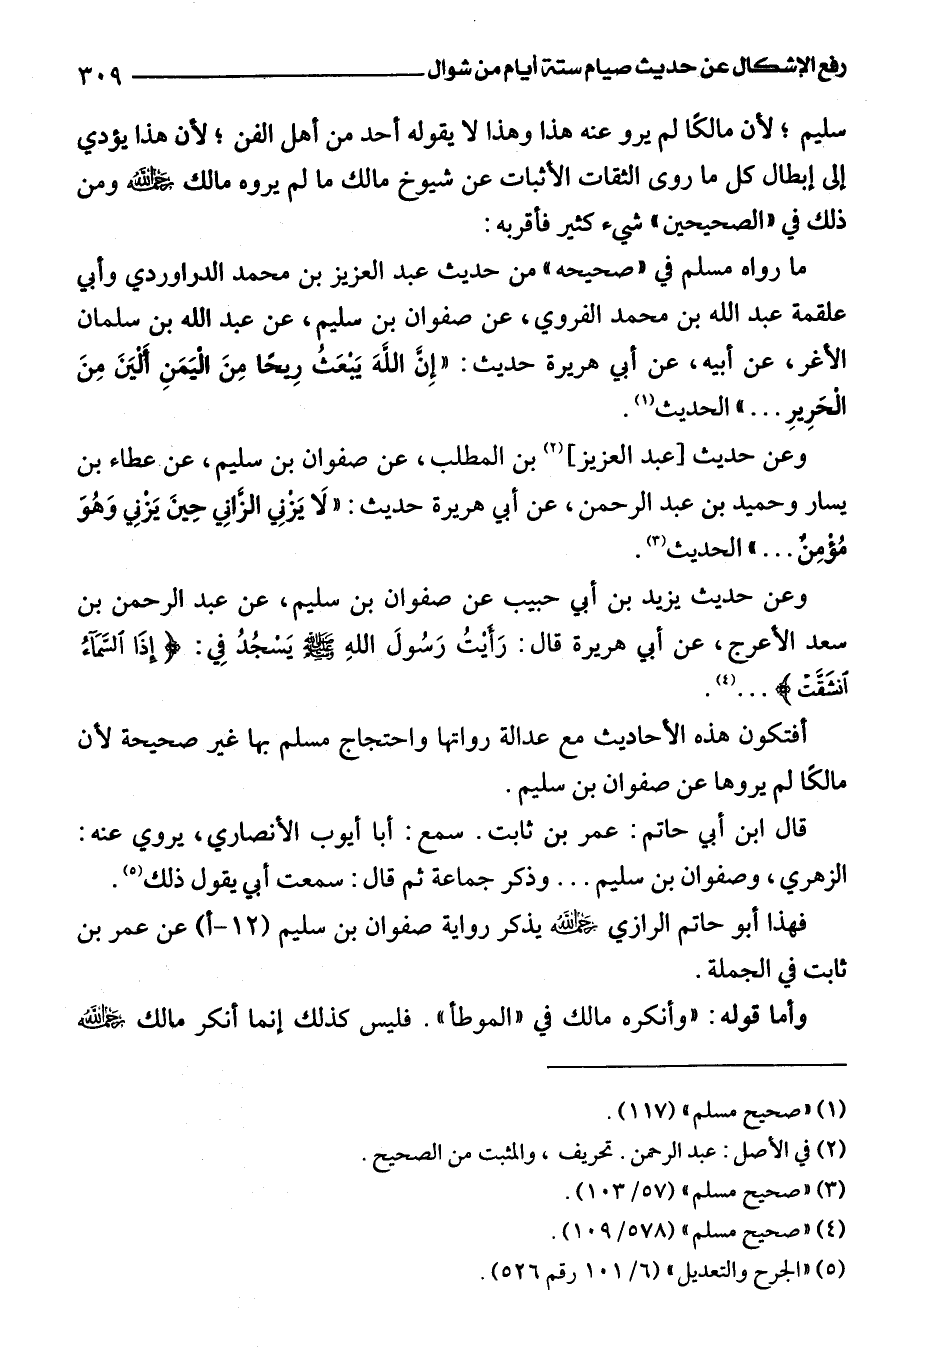 رفع الإشكال عن حديث صيام ستة أيام من شوال ٣٠٩
سليم ؛ لأن مالكًا لم يرو عنه هذا وهذا لا يقوله أحد من أهل الفن ؛ لأن هذا يؤدي
إلى إبطال كل ما روى الثقات الأثبات عن شيوخ مالك ما لم يروه مالك رحمه الله ومن
ذلك في «الصحيحين» شيء كثير فأقربه :
ما رواه مسلم في «صحيحه» من حديث عبد العزيز بن محمد الدراوردي وأبي
علقمة عبد الله بن محمد الفروي، عن صفوان بن سليم، عن عبد الله بن سلمان
الأغر، عن أبيه، عن أبي هريرة حديث: «إِنَّ اللَّهَ يَبْعَثُ رِيحًا مِنَ الْيَمَنِ أَلْيَنَ مِنَ
الْحَرِيرِ ...» الحديث(١).
وعن حديث [عبد العزيز](٢) بن المطلب، عن صفوان بن سليم، عن عطاء بن
يسار وحميد بن عبد الرحمن، عن أبي هريرة حديث: «لَا يَزْنِي الزَّانِي حِينَ يَزْنِي وَهُوَ
مُؤْمِنٌ ...» الحديث(٣).
وعن حديث يزيد بن أبي حبيب عن صفوان بن سليم، عن عبد الرحمن بن
سعد الأعرج، عن أبي هريرة قال: رَأَيْتُ رَسُولَ اللهِ ﷺ يَسْجُدُ فِي: ﴿ إِذَا ٱلسَّمَآءُ
ٱنشَقَّتْ ﴾ ...(٤).
أفتكون هذه الأحاديث مع عدالة رواتها واحتجاج مسلم بها غير صحيحة لأن
مالكًا لم يروها عن صفوان بن سليم .
قال ابن أبي حاتم: عمر بن ثابت. سمع: أبا أيوب الأنصاري، يروي عنه:
الزهري، وصفوان بن سليم ... وذكر جماعة ثم قال: سمعت أبي يقول ذلك(٥).
فهذا أبو حاتم الرازي رحمه الله يذكر رواية صفوان بن سليم (١٢-أ) عن عمر بن
ثابت في الجملة .
وأما قوله: «وأنكره مالك في «الموطأ». فليس كذلك إنما أنكر مالك رحمه الله
(١) «صحيح مسلم» (١١٧).
(٢) في الأصل: عبد الرحمن. تحريف ، والمثبت من الصحيح .
(٣) «صحيح مسلم» (١٠٣/٥٧).
(٤) «صحيح مسلم» (١٠٩/٥٧٨).
(٥) «الجرح والتعديل» (٦/ ١٠١ رقم ٥٢٦).